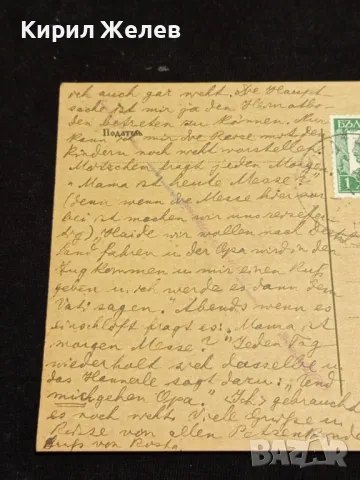 Кирил Желев
ich auch gar nicht. Die Haupt-
sache ist mir ja den Heimatbo-
den betreten zu können. Nur
Податель
kann ich mir die Reise mit den
Kindern noch nicht vorstellen.
fragt jeden Morgen
"Mama ist heute Messe?"
(denn wenn die Messe hier vor-
bei ist machen wir uns reisefer-
tig) "Haide wir wollen nach
fahren u der Opa wird in den
Zug kommen u mir einen Kuß
geben u. ich werde es dann dem
Vati sagen." Abends wenn es
einschläft fragt es: "Mama ist
morgen Messe?" Jeden Tag
wiederholt sich dasselbe u
das Hannerle sagt darin: "und
mich gehen Opa."
es noch nicht. Viele Grüße u
Küsse von allen
Gruß von
БЪЛ
1
BAZAR